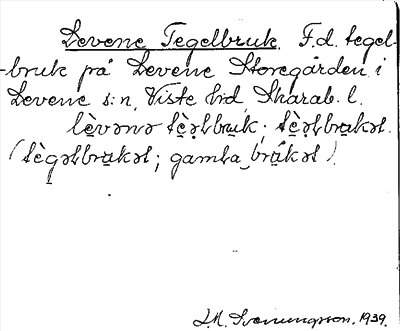 Levene Tegelbruk. F.d. tegel-
-bruk på Levene Storegården i
Levene s:n, Viste hd, Skarab. l.
lèvənə tè̤ə̣lbru̱k; tè̤ə̣lbru̱kət.
(tèg̣əlbru̱kət; gamla brú̱kət).
J.M. Svenungsson. 1939.